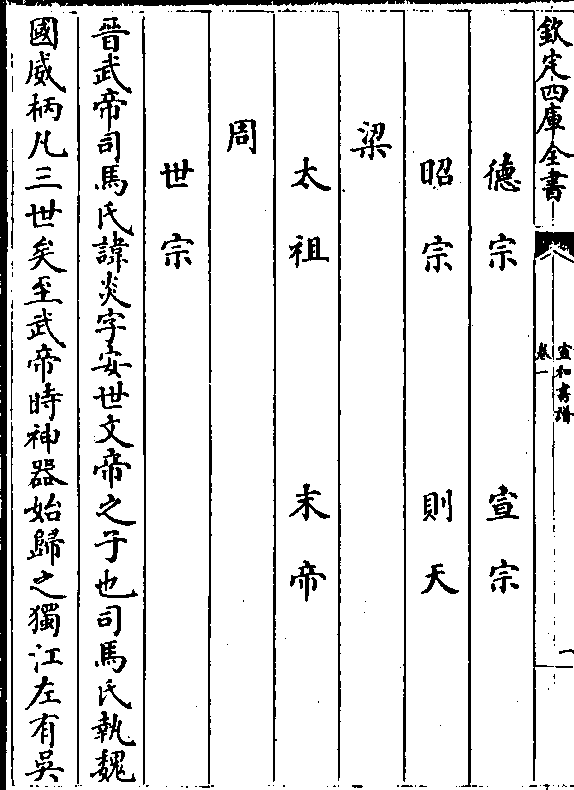 欽定四庫全書
宣和書譜
卷一
一
德宗 宣宗
昭宗 則天
梁
太祖 末帝
周
世宗
晉武帝司馬氏諱炎字安世文帝之子也司馬氏執魏
國威柄凡三世矣至武帝時神器始歸之獨江左有吳